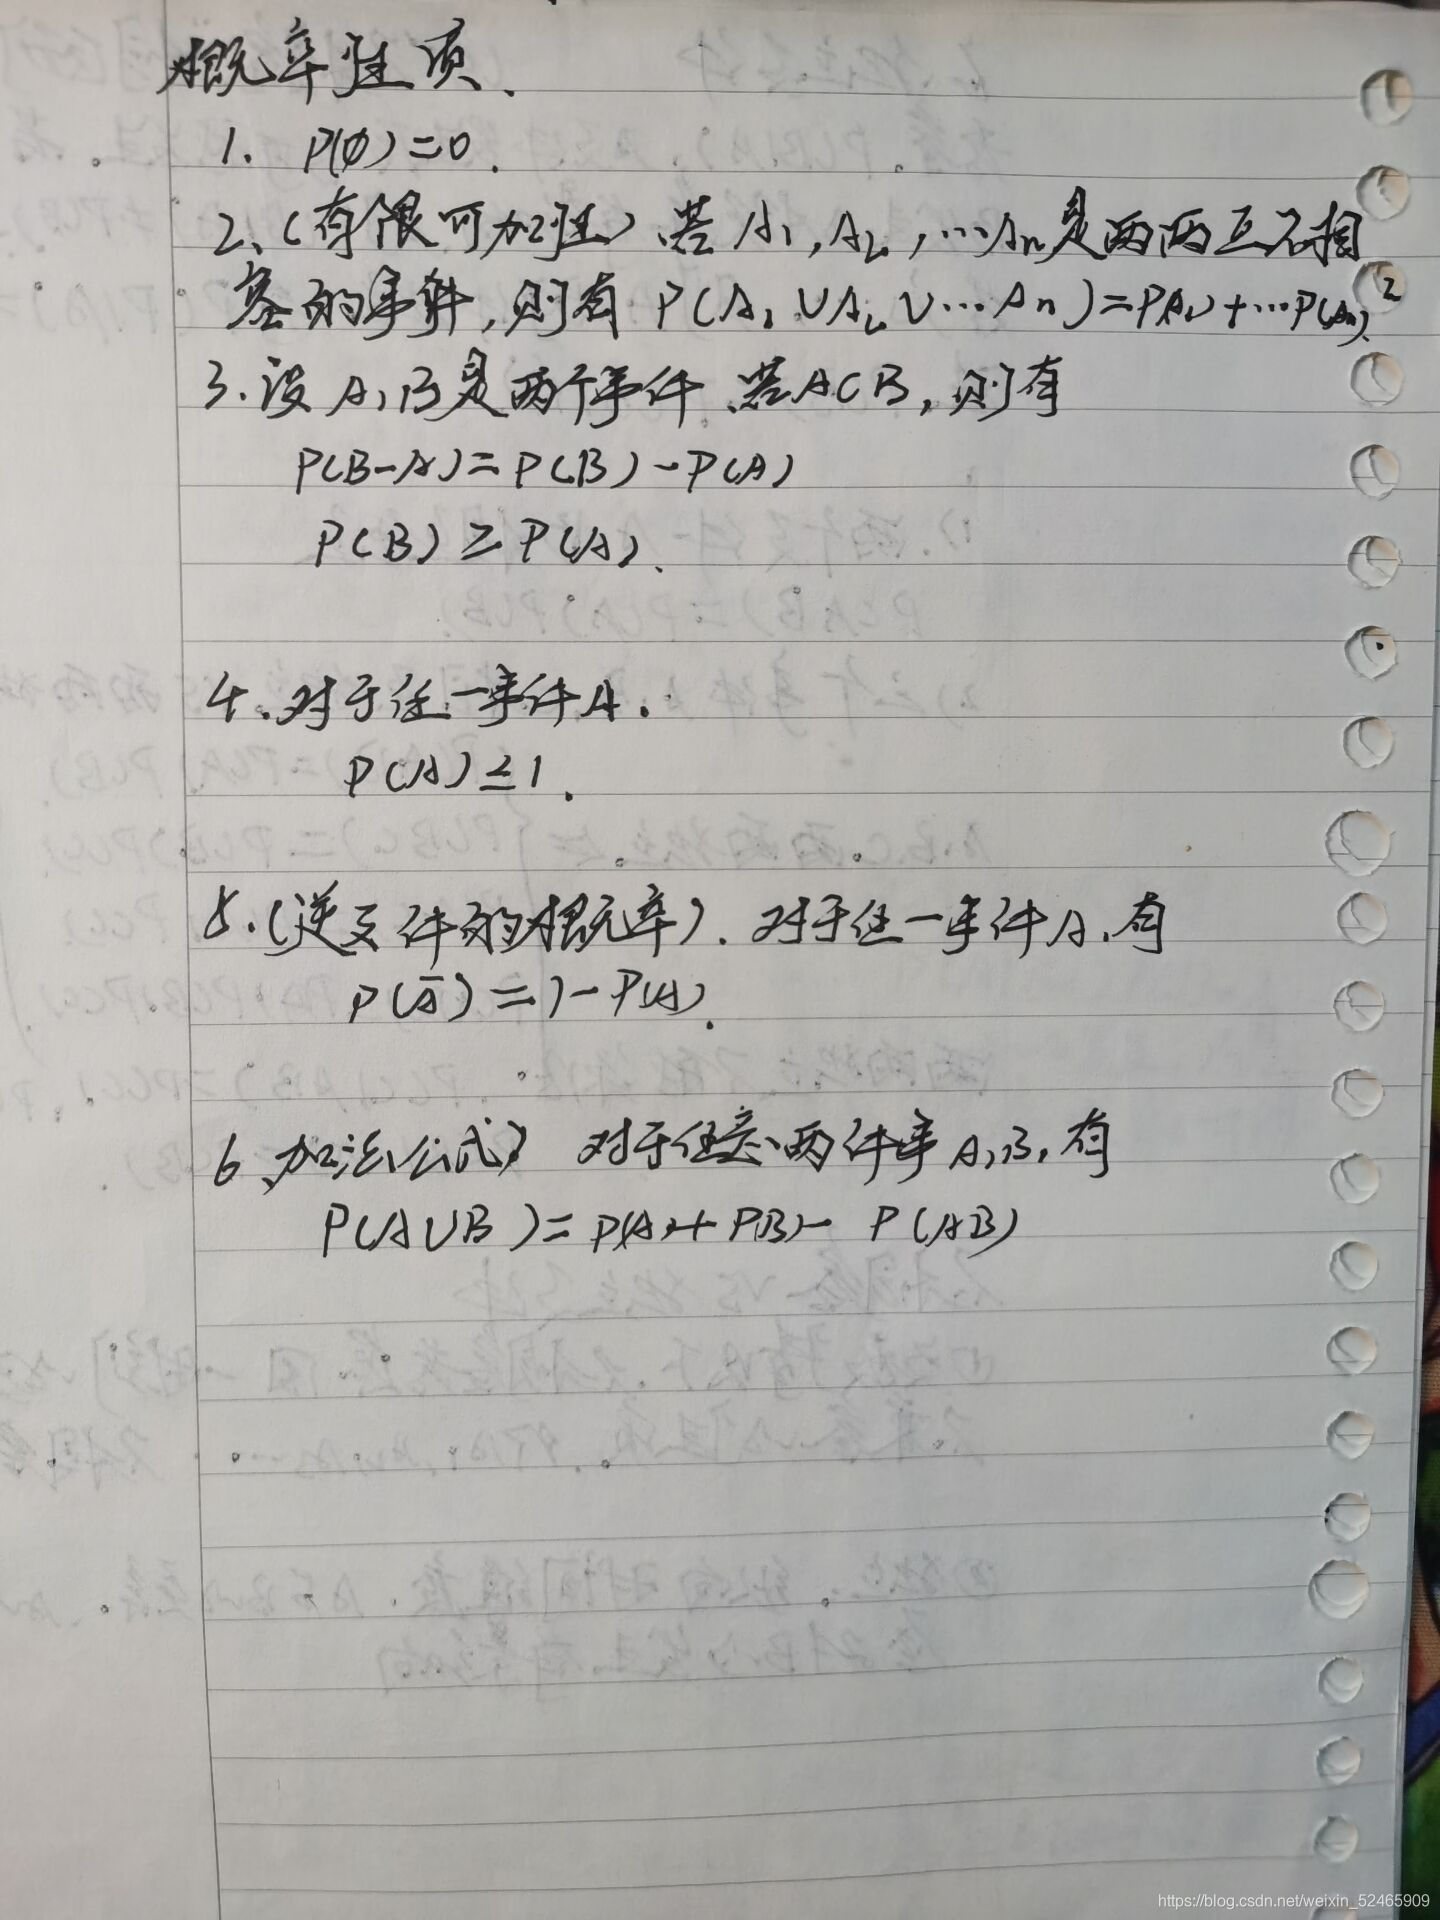 概率性质、
1. P(∅)=0.
2、(有限可加性)、若 A₁,A₂,…Aₙ是两两互不相
容的事件,则有 P(A₁∪A₂∪…Aₙ)=P(A₁)+…P(Aₙ)
3.设A,B是两个事件 若A⊂B,则有
P(B-A)=P(B)-P(A)
P(B)≥P(A)、
4、对于任一事件A.
P(A)≤1.
5.(逆事件的概率). 对于任一事件A,有
P(A̅)=1-P(A).
6、加法公式) 对于任意两件事A,B,有
P(A∪B)=P(A)+P(B)-P(AB)
https://blog.csdn.net/weixin_52465909